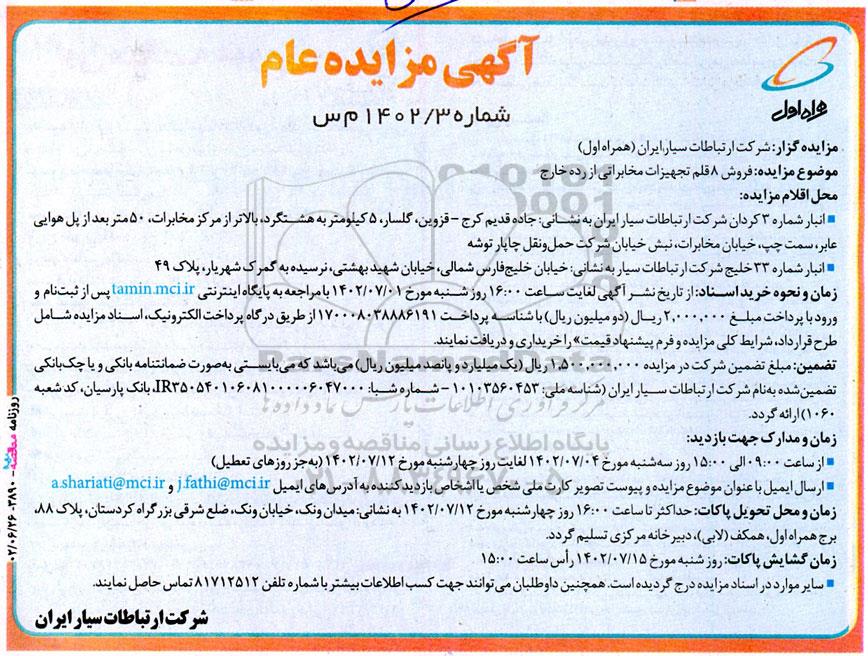 آگهی مزایده عام
شماره ۱۴۰۲/۳ م س
همراه اول
مزایده گزار: شرکت ارتباطات سیار ایران (همراه اول)
موضوع مزایده: فروش ۸ قلم تجهیزات مخابراتی از رده خارج
محل اقلام مزایده:
انبار شماره ۳ کردان شرکت ارتباطات سیار ایران به نشانی: جاده قدیم کرج - قزوین، گلسار، ۵ کیلومتر به هشتگرد، بالاتر از مرکز مخابرات، ۵۰ متر بعد از پل هوایی
عابر، سمت چپ، خیابان مخابرات، نبش خیابان شرکت حمل‌ونقل چاپار توشه
انبار شماره ۳۳ خلیج شرکت ارتباطات سیار به نشانی: خیابان خلیج‌فارس شمالی، خیابان شهید بهشتی، نرسیده به گمرک شهریار، پلاک ۴۹
زمان و نحوه خرید اسناد: از تاریخ نشر آگهی لغایت ساعت ۱۶:۰۰ روز شنبه مورخ ۱۴۰۲/۰۷/۰۱ با مراجعه به پایگاه اینترنتی tamin.mci.ir پس از ثبت‌نام و
ورود با پرداخت مبلغ ۲,۰۰۰,۰۰۰ ریال (دو میلیون ریال) با شناسه پرداخت ۱۷۰۰۰۸۰۳۸۸۸۶۱۹۱ از طریق درگاه پرداخت الکترونیک، اسناد مزایده شامل
طرح قرارداد، شرایط کلی مزایده و فرم پیشنهاد قیمت» را خریداری و دریافت نمایند.
تضمین: مبلغ تضمین شرکت در مزایده ۱,۵۰۰,۰۰۰,۰۰۰ ریال (یک میلیارد و پانصد میلیون ریال) می‌باشد که می‌بایستی به‌صورت ضمانتنامه بانکی و یا چک بانکی
تضمین شده به‌نام شرکت ارتباطات سیار ایران (شناسه ملی: ۱۰۱۰۳۵۶۰۴۵۳ - شماره شبا: IR۳۵۰۵۴۰۱۰۶۰۸۱۰۰۰۰۰۶۰۴۷۰۰۰، بانک پارسیان، کد شعبه
۱۰۶۰) ارائه گردد.
زمان و مدارک جهت بازدید:
از ساعت ۰۹:۰۰ الی ۱۵:۰۰ روز سه‌شنبه مورخ ۱۴۰۲/۰۷/۰۴ لغایت روز چهارشنبه مورخ ۱۴۰۲/۰۷/۱۲ (به‌جز روزهای تعطیل)
ارسال ایمیل با عنوان موضوع مزایده و پیوست تصویر کارت ملی شخص یا اشخاص بازدیدکننده به آدرس‌های ایمیل j.fathi@mci.ir و a.shariati@mci.ir
زمان و محل تحویل پاکات: حداکثر تا ساعت ۱۶:۰۰ روز چهارشنبه مورخ ۱۴۰۲/۰۷/۱۲ به نشانی: میدان ونک، خیابان ونک، ضلع شرقی بزرگراه کردستان، پلاک ۸۸،
برج همراه اول، همکف (لابی)، دبیرخانه مرکزی تسلیم گردد.
زمان گشایش پاکات: روز شنبه مورخ ۱۴۰۲/۰۷/۱۵ رأس ساعت ۱۵:۰۰
سایر موارد در اسناد مزایده درج گردیده است. همچنین داوطلبان می‌توانند جهت کسب اطلاعات بیشتر با شماره تلفن ۸۱۷۱۲۵۱۲ تماس حاصل نمایند.
شرکت ارتباطات سیار ایران
روزنامه مناقصه مزایده - ۳۸۹۰ - ۰۲/۰۶/۲۶
ParsNamadData
مرکز فرآوری اطلاعات پارس نماد داده ها
پایگاه اطلاع رسانی مناقصه و مزایده
۰۲۱-۸۸۳۴۹۶۷۰-۵